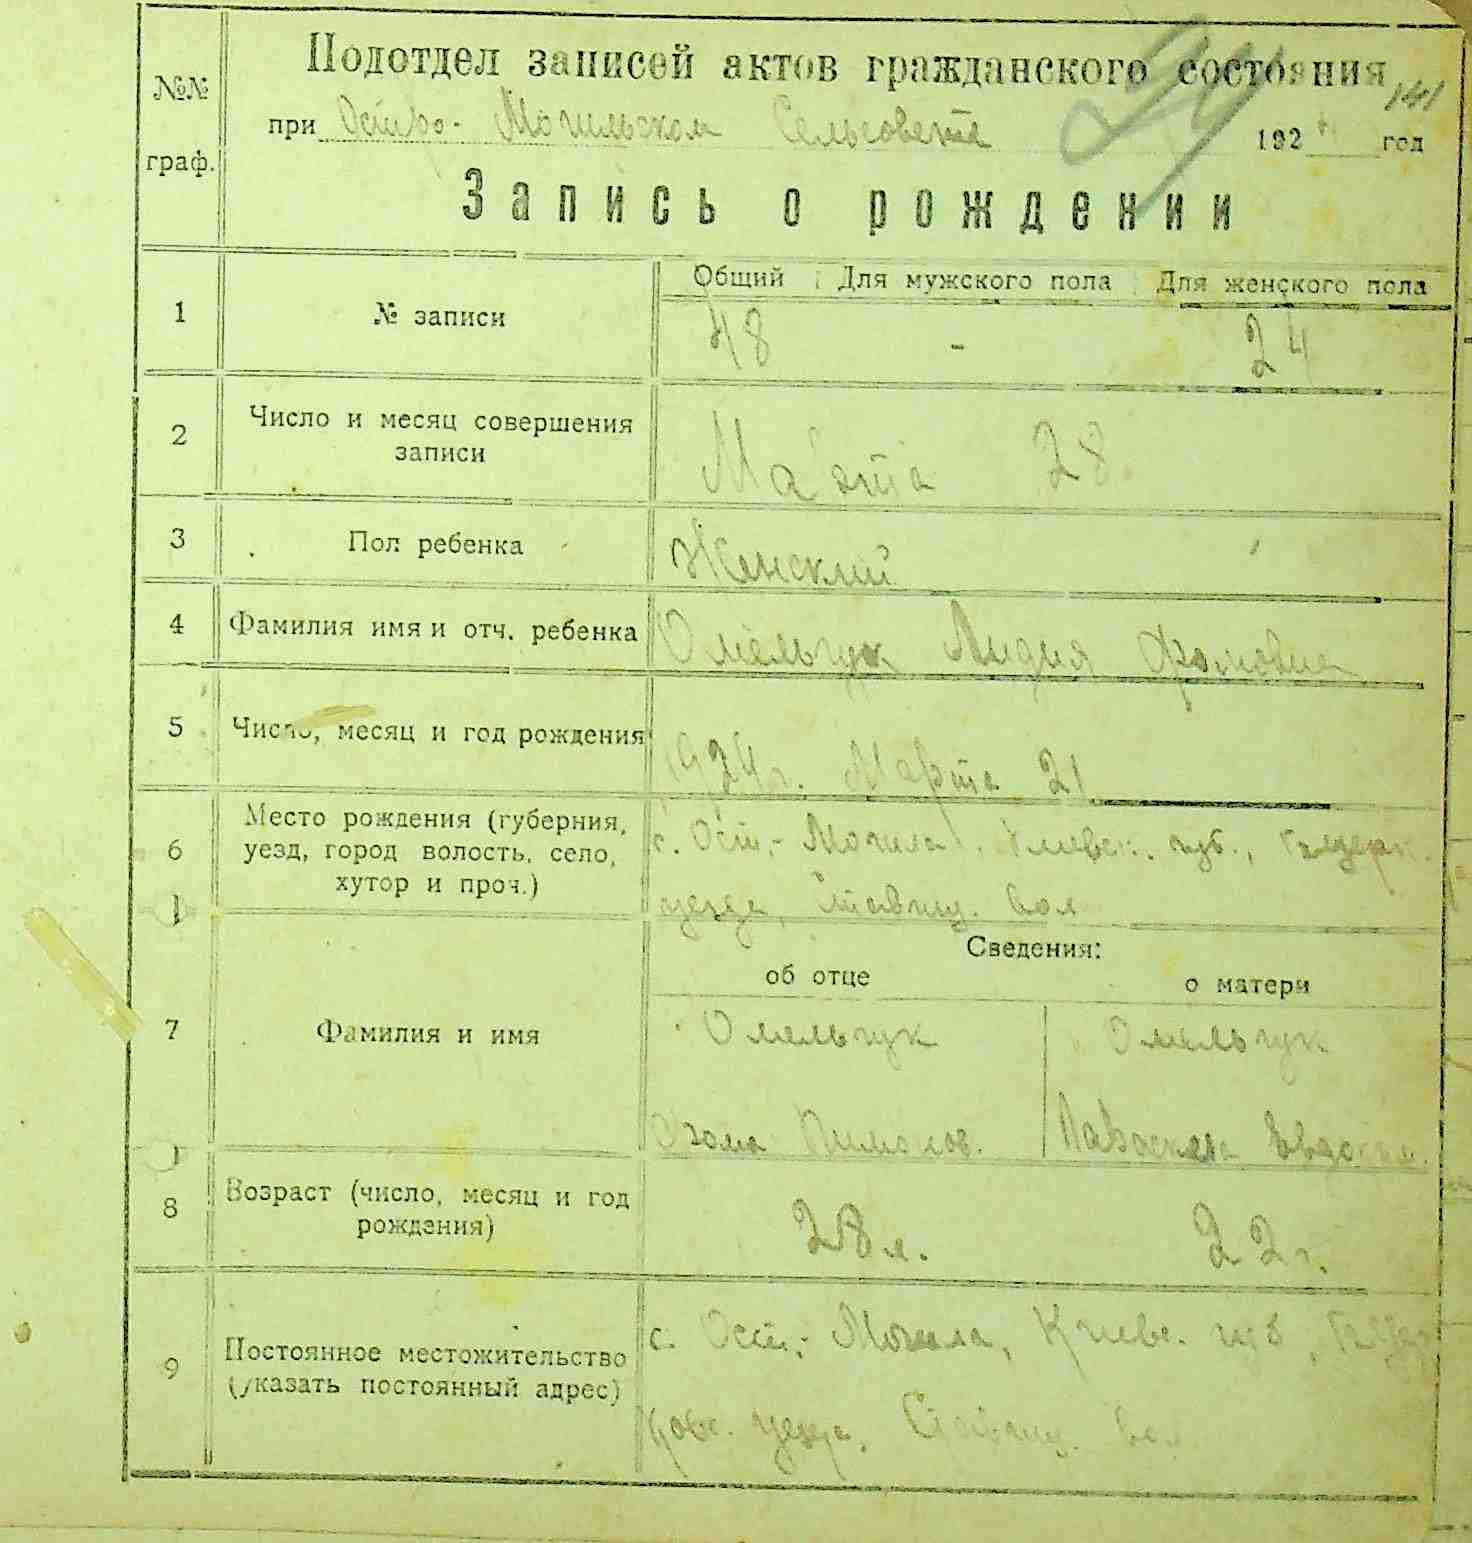 №№
граф.
Подотдел записей актов гражданского состояния
141
при Остро-Могильском Сельсовете 192 год
Запись о рождении
Общий Для мужского пола Для женского пола
1 № записи 48 - 24
2 Число и месяц совершения
записи
Марта 28
3 Пол ребенка Женский
4 Фамилия имя и отч. ребенка Омельчук Лидия Фомовна
5 Число, месяц и год рождения 1924 г. Марта 21
6 Место рождения (губерния,
уезд, город волость, село,
хутор и проч.)
с. Ост.-Могила, Киевск. губ.,
уезда, Ставищ. вол
Сведения:
об отце о матери
7 Фамилия и имя
Омельчук Омельчук
Фома
8 Возраст (число, месяц и год
рождения)
28 л. 22 г.
9 Постоянное местожительство
(указать постоянный адрес)
с. Ост.-Могила, Киевс. губ,
уезда, Ставищ. вол